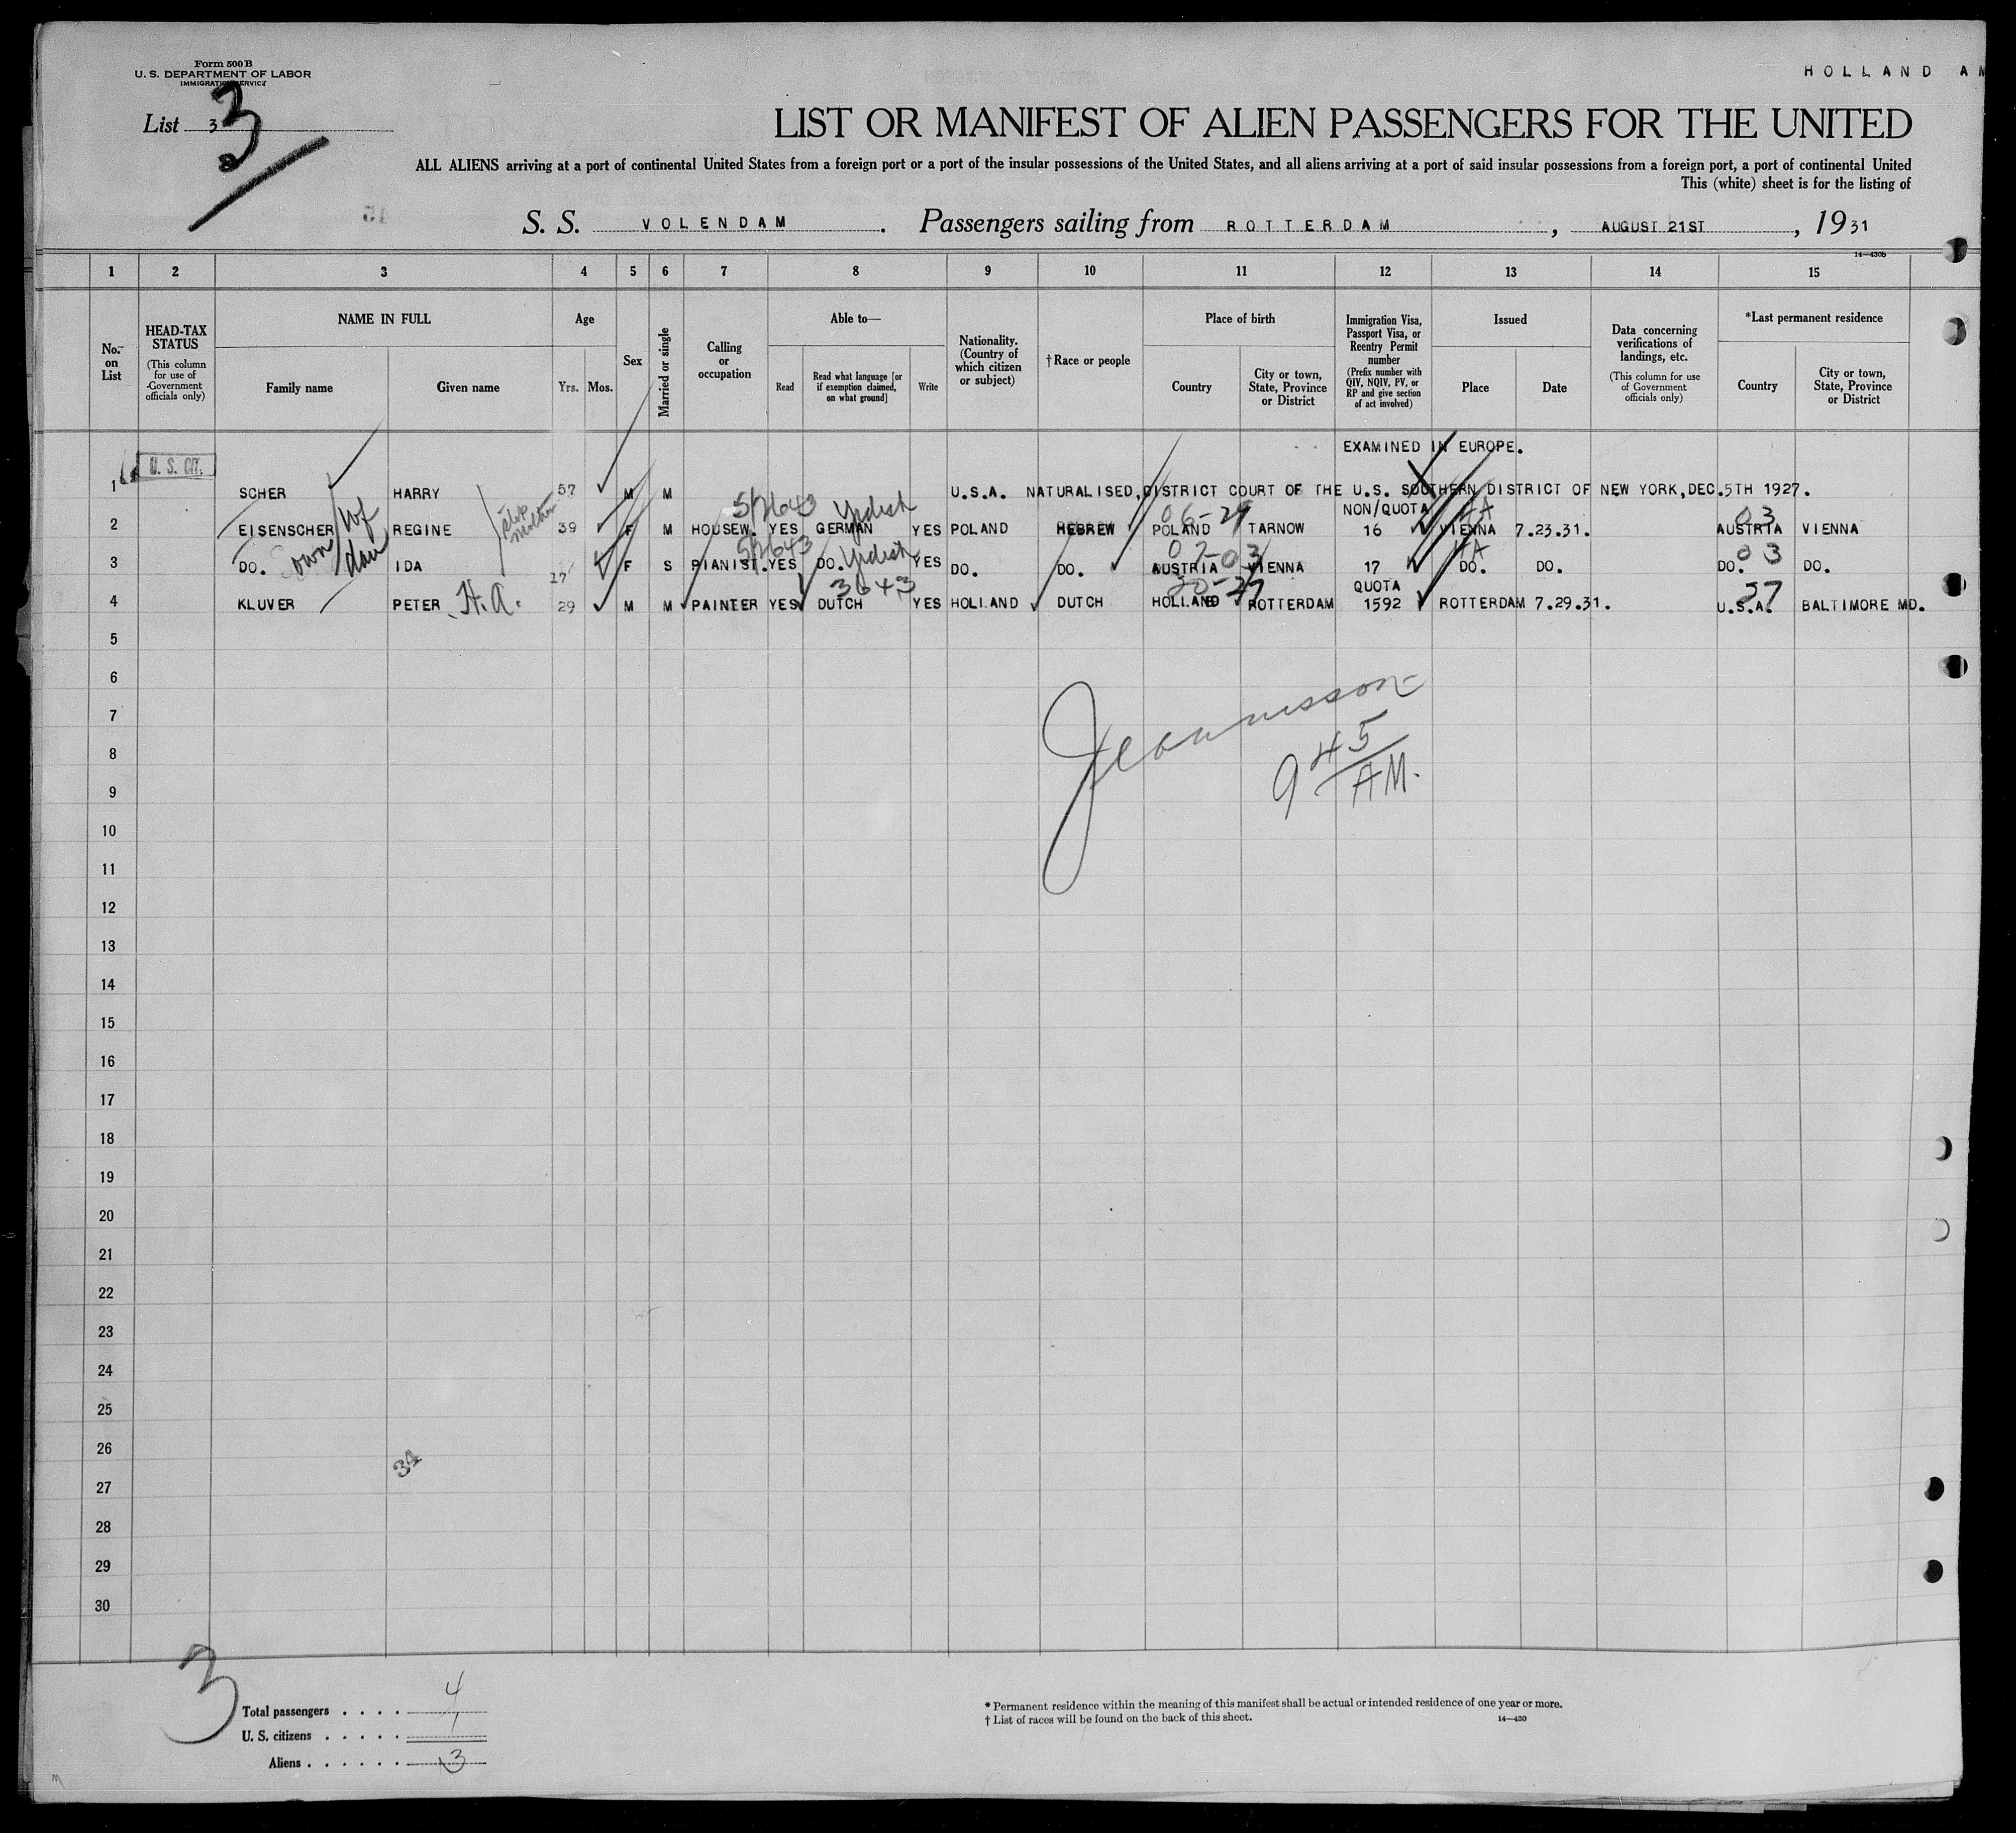 Form 500 B
U. S. DEPARTMENT OF LABOR
IMMIGRATION SERVICE
HOLLAND AM
List 3
3
LIST OR MANIFEST OF ALIEN PASSENGERS FOR THE UNITED
ALL ALIENS arriving at a port of continental United States from a foreign port or a port of the insular possessions of the United States, and all aliens arriving at a port of said insular possessions from a foreign port, a port of continental United
This (white) sheet is for the listing of
S. S. VOLENDAM. Passengers sailing from ROTTERDAM, AUGUST 21ST, 1931
14—430b
1 2 3 4 5 6 7 8 9 10 11 12 13 14 15
No. on List
HEAD-TAX STATUS
(This column for use of Government officials only)
NAME IN FULL
Family name
Given name
Age
Yrs. Mos.
Sex
Married or single
Calling or occupation
Able to—
Read
Read what language [or if exemption claimed, on what ground]
Write
Nationality. (Country of which citizen or subject)
†Race or people
Place of birth
Country
City or town, State, Province or District
Immigration Visa, Passport Visa, or Reentry Permit number
(Prefix number with QIV, NQIV, PV, or RP and give section of act involved)
Issued
Place
Date
Data concerning verifications of landings, etc.
(This column for use of Government officials only)
*Last permanent residence
Country
City or town, State, Province or District
EXAMINED IN EUROPE.
U. S. CIT.
1 SCHER HARRY 57 M M U.S.A. NATURALISED, DISTRICT COURT OF THE U.S. SOUTHERN DISTRICT OF NEW YORK, DEC. 5TH 1927.
wf step mother Yidish 06-29 NON/QUOTA 03
2 EISENSCHER REGINE 39 F M HOUSEW. YES GERMAN YES POLAND HEBREW POLAND TARNOW 16 VIENNA 7.23.31. AUSTRIA VIENNA
own dau Yidish 03 03
3 DO. IDA 27 F S PIANIST. YES DO. YES DO. DO. AUSTRIA VIENNA 17 DO. DO. DO. DO.
3643 QUOTA
4 KLUVER PETER H.A. 29 M M PAINTER YES DUTCH YES HOLLAND DUTCH HOLLAND ROTTERDAM 1592 ROTTERDAM 7.29.31. U.S.A. BALTIMORE MD.
5
6
7
8
9 45
AM.
9
10
11
12
13
14
15
16
17
18
19
20
21
22
23
24
25
26
34
27
28
29
30
3
Total passengers . . . . 4
U. S. citizens . . . . . 1
Aliens . . . . . . 3
* Permanent residence within the meaning of this manifest shall be actual or intended residence of one year or more.
† List of races will be found on the back of this sheet.
14—430